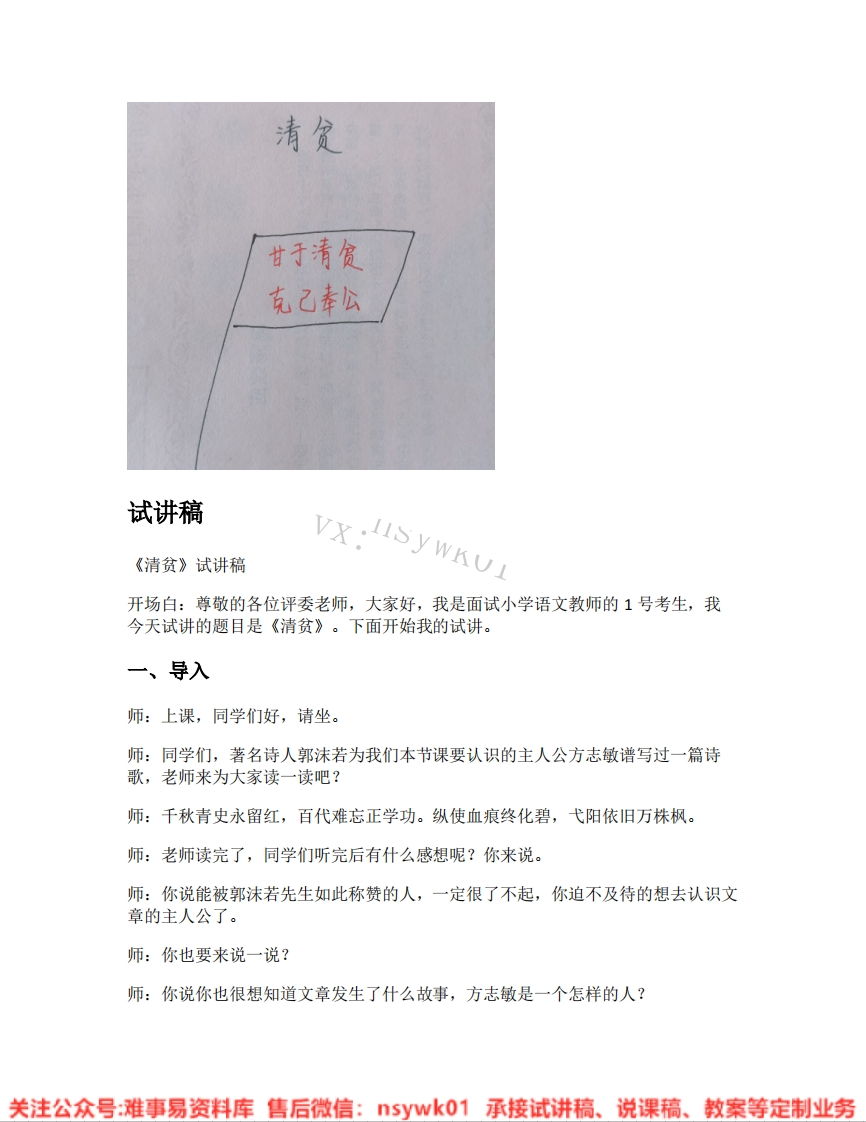 清贫
甘于清贫
克己奉公
试讲稿
VX:nsywk01
《清贫》试讲稿
开场白：尊敬的各位评委老师，大家好，我是面试小学语文教师的 1 号考生，我
今天试讲的题目是《清贫》。下面开始我的试讲。
一、导入
师：上课，同学们好，请坐。
师：同学们，著名诗人郭沫若为我们本节课要认识的主人公方志敏谱写过一篇诗
歌，老师来为大家读一读吧？
师：千秋青史永留红，百代难忘正学功。纵使血痕终化碧，弋阳依旧万株枫。
师：老师读完了，同学们听完后有什么感想呢？你来说。
师：你说能被郭沫若先生如此称赞的人，一定很了不起，你迫不及待的想去认识文
章的主人公了。
师：你也要来说一说？
师：你说你也很想知道文章发生了什么故事，方志敏是一个怎样的人？
关注公众号:难事易资料库 售后微信：nsywk01 承接试讲稿、说课稿、教案等定制业务